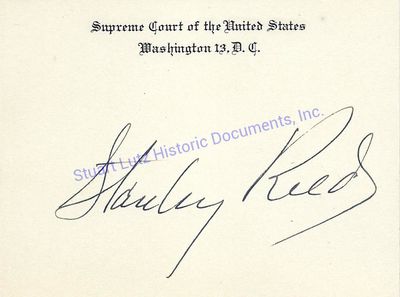 Supreme Court of the United States
Washington 13, D. C.
Stuart Lutz Historic Documents, Inc.
Stanley Reed